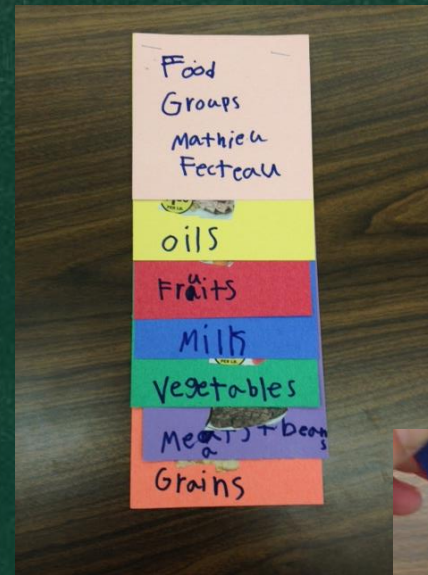 Food
Groups
Mathieu
Fecteau
oils
Fruits
Milk
Vegetables
Meats + beans
Grains